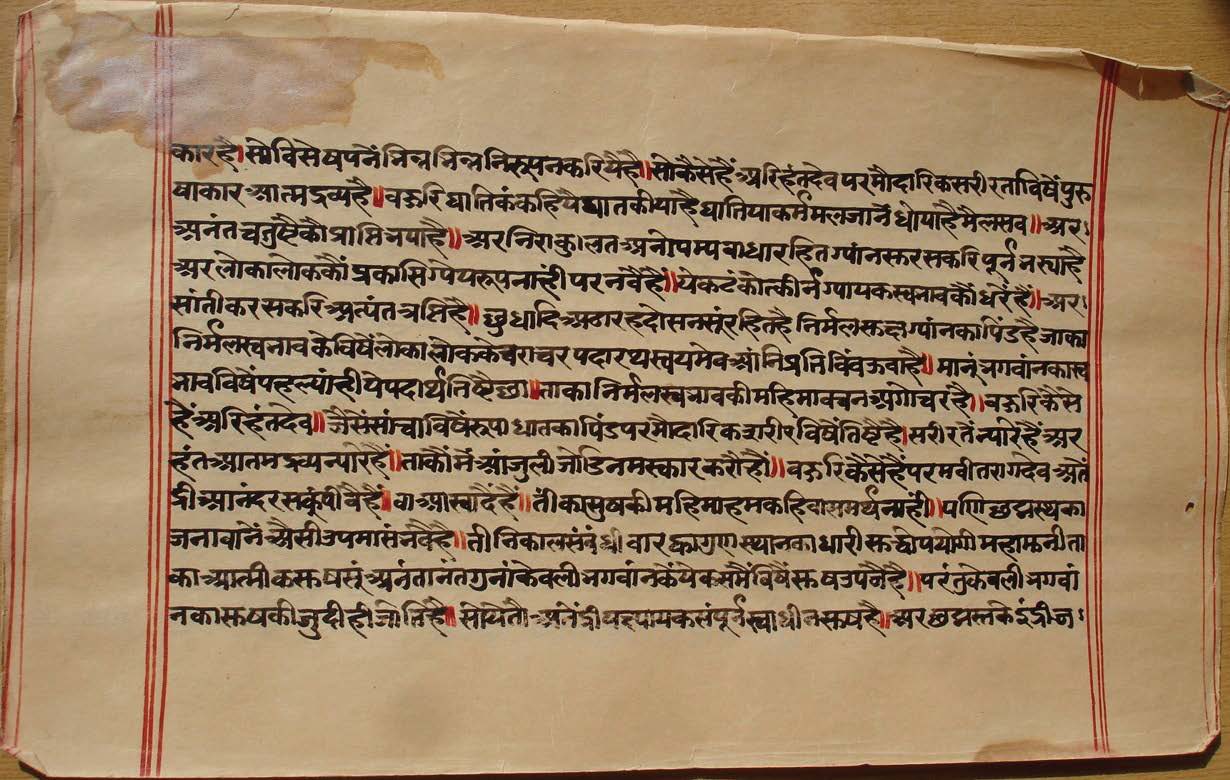 कारहै।सोविसेषपनेंभिन्नभिन्ननिरूपनकरियेहै॥सोकैसेहैंअरिहंतदेवपरमौदारिकसरीरताविषैंपुरु
षाकारआत्मद्रव्यहै॥बऊरिघातिकंकहियेघातकीयाहैघातियाकर्ममलजानेंधोयाहैमैलसब॥अर
अनंतचतुष्टैकौप्राप्तिभयाहै॥अरनिराकुलितअनोपम्यबाधारहितग्यांनसुरसकरिपूर्नभस्याहै
अरलोकालोककौंप्रकासिग्येयरूपनाहीपरनवैहैं॥येकटंकोत्कीर्नग्यायकस्वभावकौंधरेंहैं॥अर
सांतीकरसकरिअत्यंतत्रप्तिहै॥क्षुधादिअठारहदोसनसूंरहितहैनिर्मलसुछग्यांनकापिंडहैजाका
निर्मलस्वभावकेविषैंलोकालोककेचराचरपदारथस्वयमेवआंनिप्रतिबिंबऊवाहै॥मानूंभगवांनकास्व
भावविषैंपहल्यांहीयेपदार्थतिष्टैछा॥ताकानिर्मलस्वभावकीमहिमाबचनअगोचरहै॥बऊरिकैसे
हैंअरिहंतदेव॥जैसेंसांचाविषैंरूपाधातकापिंडपरमौदारिकशरीरविषैंतिष्टैहै।सरीरतेंन्यारेहैंअर
हंतआतमद्रव्यन्यारेहैं॥ताकौंमेंआंजुलीजोडिनमस्कारकरौंहौं॥बऊरिकैसेहैंपरमवीतरागदेवअतें
द्रीआनंदरसकूंपीवैहैं॥वाआस्वादैंहैं॥तींकासुषकीमहिमाहमकहिवासमर्थनाहीं॥पणिछद्मस्थका
जनावानेंअैसीउपमासंभवैहै॥तीनिकालसंबंधीबारह्वागुणस्थानकाधारीसुद्धोपयोगीमहामुनीता
काआत्मीकसुषसूंअनंतानंतगुनांकेवलीभगवांनकेंयेकसमैंविषैंसुषउपजैहै॥परंतुकेवलीभगवां
नकासुषकीजुदीहीजातिहै॥सोयेतौअतेंद्रीयष्यायकसंपूर्नस्वाधीनसुषहै॥अरछद्मस्तकेइंद्रीज